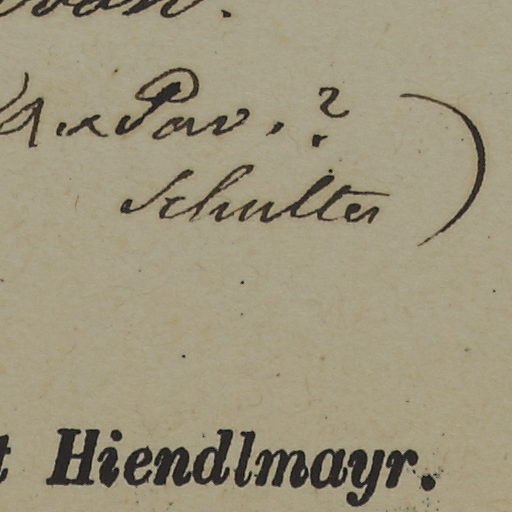 & Pav. ?
Schultes )
t Hiendlmayr.